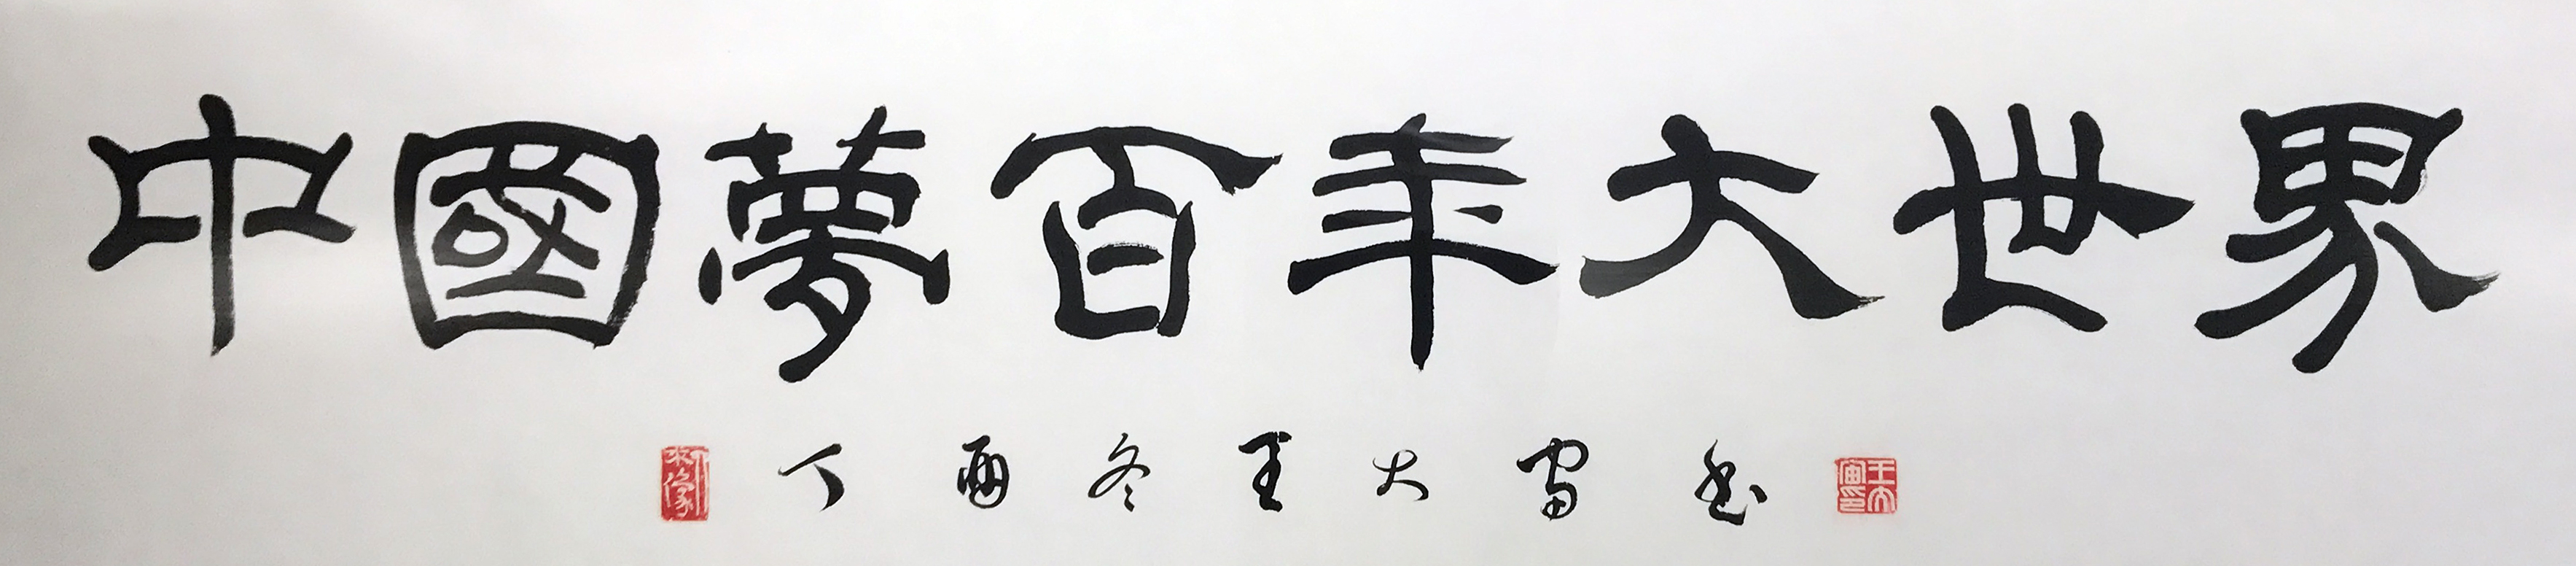 中國夢百年大世界
丁酉冬王大宙書
王大宙印